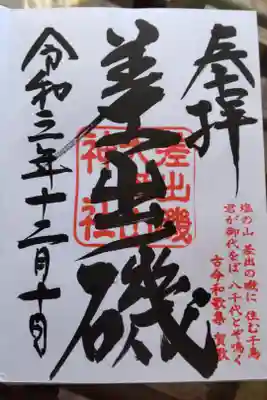 奉拝
差出磯
差出磯
大嶽山
神社
令和三年十二月十日
塩の山 差出の磯に 住む千鳥
君が御代をば 八千代とぞ鳴く
古今和歌集 賀歌